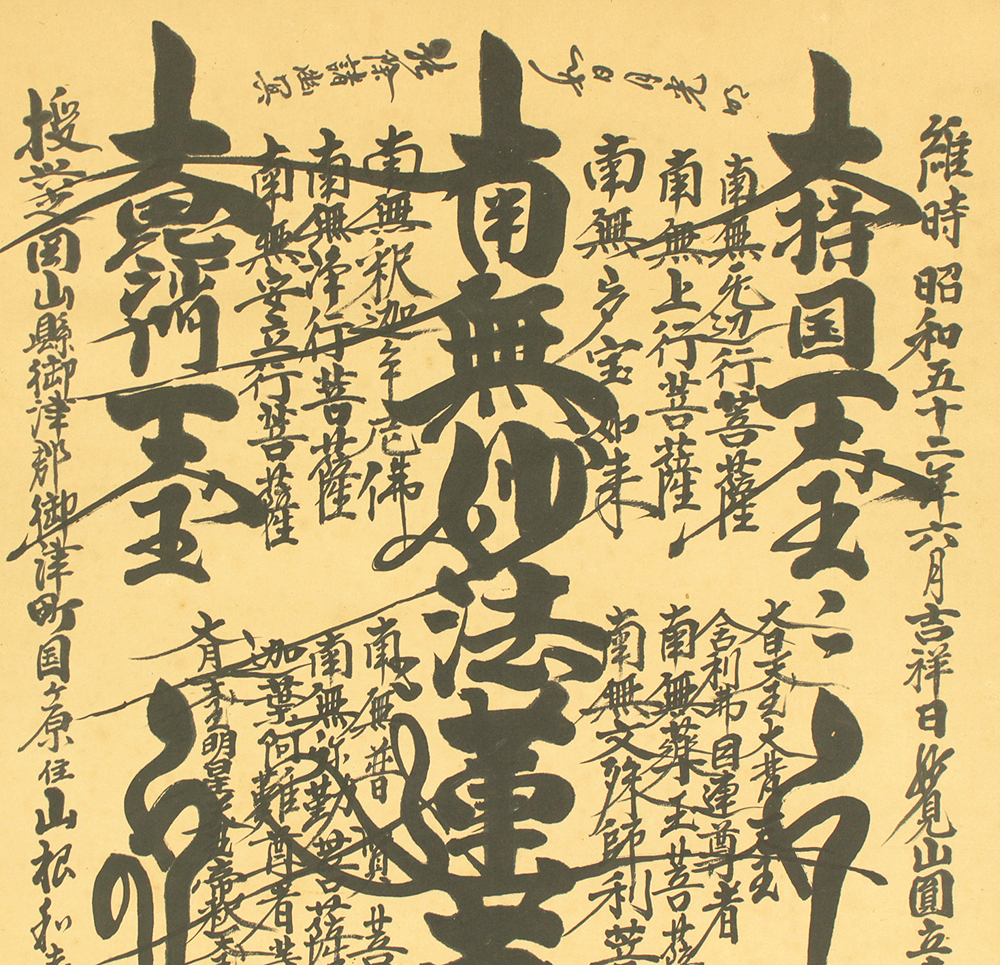 維時昭和五十二年六月吉祥日 覚山圓立
大持国天王
南無无辺行菩薩
南無上行菩薩
南無多宝如来
南無妙法蓮
南無釈迦牟尼佛
南無浄行菩薩
南無安立行菩薩
大毘沙門天王
授与之岡山縣御津郡御津町国ケ原住山根和
大日天王大梵天王
舎利弗目連尊者
南無薬王菩薩
南無文殊師利菩
南無普賢菩
南無弥勒菩薩
迦葉阿難尊者
大月天王明星天王帝釈天